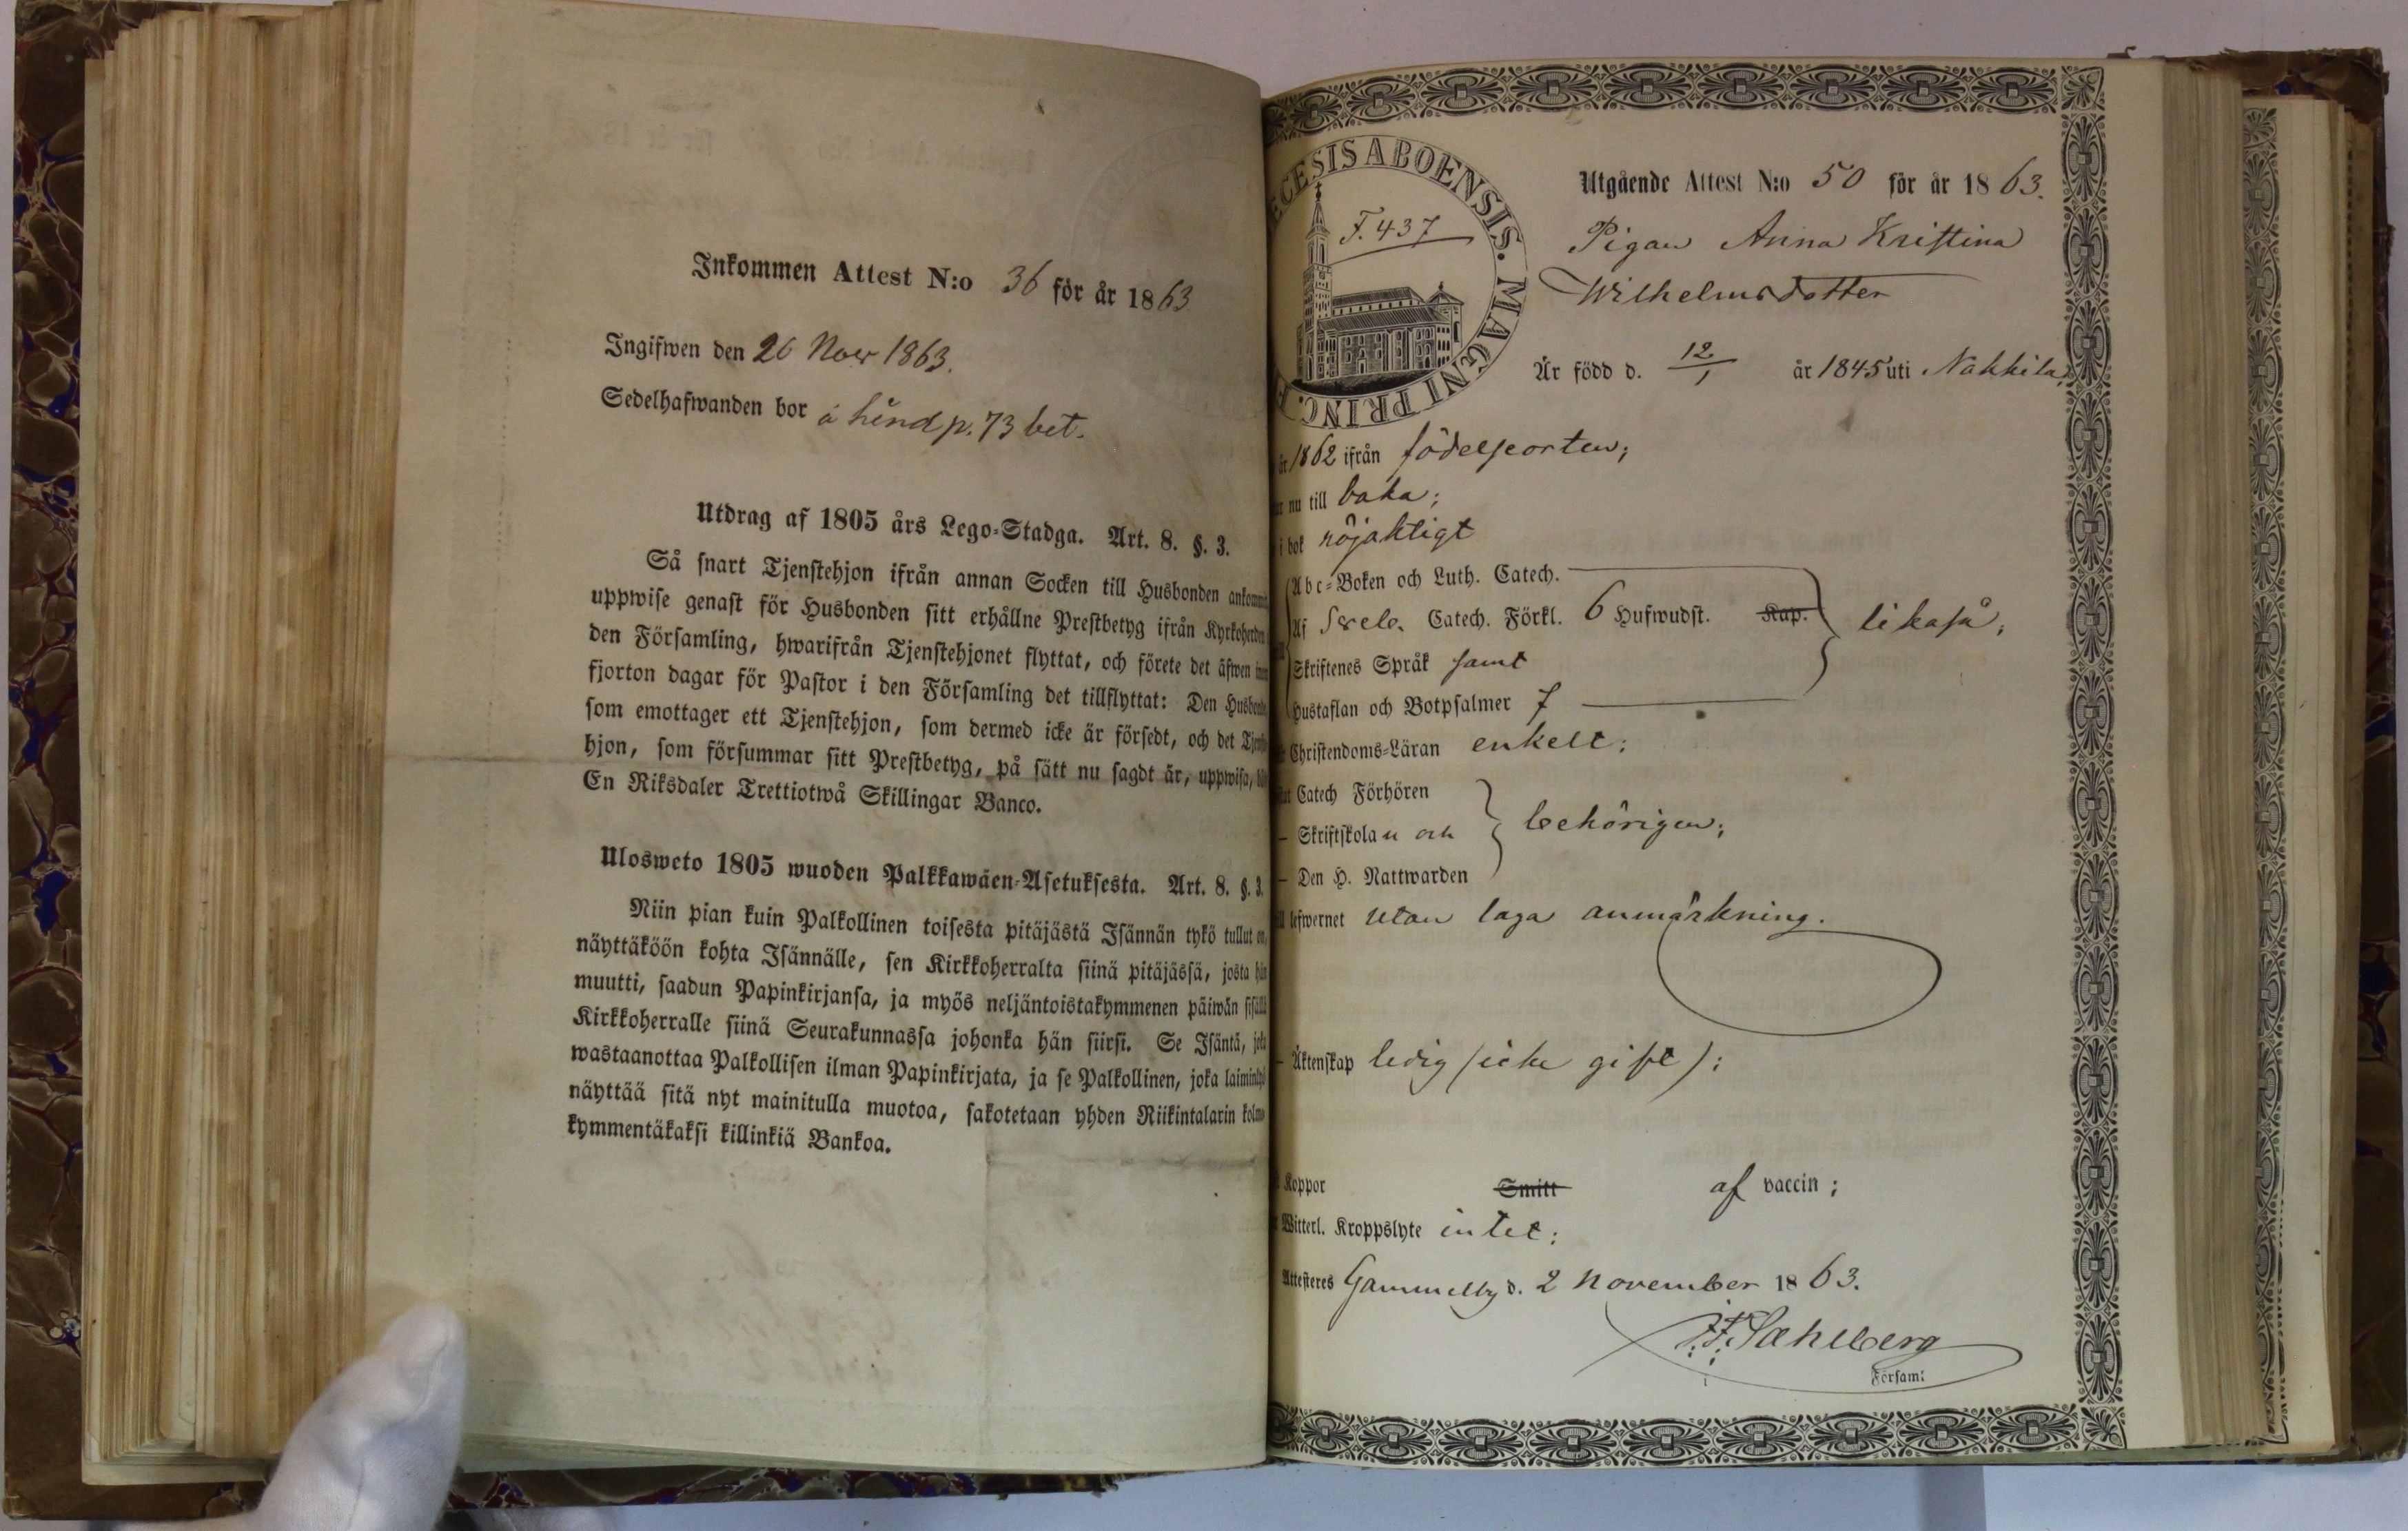 Inkommen Attest N:o 36 för år 1863
Ingifwen den 26 Nov 1863.
Sedelhafwanden bor å hånd p. 73 bet.
Utdrag af 1805 års Lego-Stadga. Art. 8. §. 3.
Så snart Tjenstehjon ifrån annan Socken till Husbonden
uppwise genast för Husbonden sitt erhållne Prestbetyg ifrån Kyrkoherden
den Församling, hwarifrån Tjenstehjonet flyttat, och förete det äfwen
fjorton dagar för Pastor i den Församling det tillflyttat: Den
som emottager ett Tjenstehjon, som dermed icke är försedt, och det
hjon, som försummar sitt Prestbetyg, på sätt nu sagdt är, uppwisa,
En Riksdaler Trettiotwå Skillingar Banco.
Ulosweto 1805 wuoden Palkkawäen-Asetuksesta. Art. 8. §. 3.
Niin pian kuin Palkollinen toisesta pitäjästä Isännän tykö tullut on,
näyttäköön kohta Isännälle, sen Kirkkoherralta siinä pitäjässä, josta hän
muutti, saadun Papinkirjansa, ja myös neljäntoistakymmenen päiwän sisällä
Kirkkoherralle siinä Seurakunnassa johonka hän siirsi. Se Isäntä, joka
wastaanottaa Palkollisen ilman Papinkirjata, ja se Palkollinen, joka
näyttää sitä nyt mainitulla muotoa, sakotetaan yhden Riikintalarin kolme-
kymmentäkaksi killinkiä Bankoa.
ECESIS ABOENSIS. MAGNI PRINC. F
F. 437
Utgående Attest N:o 50 för år 1863.
Pigan Anna Kristina
Wilhelmsdotter
Är född d. 12/1 år 1845 uti Nakkila,
år 1862 ifrån födelseorten;
nu till baka;
i bok nöjaktigt
Abc-Boken och Luth. Catech.
Af Sveb. Catech. Förkl. 6 Hufwudst. Kap. likaså;
Skriftenes Språk samt
Hustaflan och Botpsalmer 7
Christendoms-Läran enkelt;
Catech Förhören
– Skriftskolan och behörigen;
– Den H. Nattwarden
lefwernet utan laga anmärkning.
– Äktenskap ledig (icke gift);
Koppor Smitt af vaccin;
Witterl. Kroppslyte intet;
Attesteres Gammelby d. 2 November 1863.
F. Sahlberg
Församl